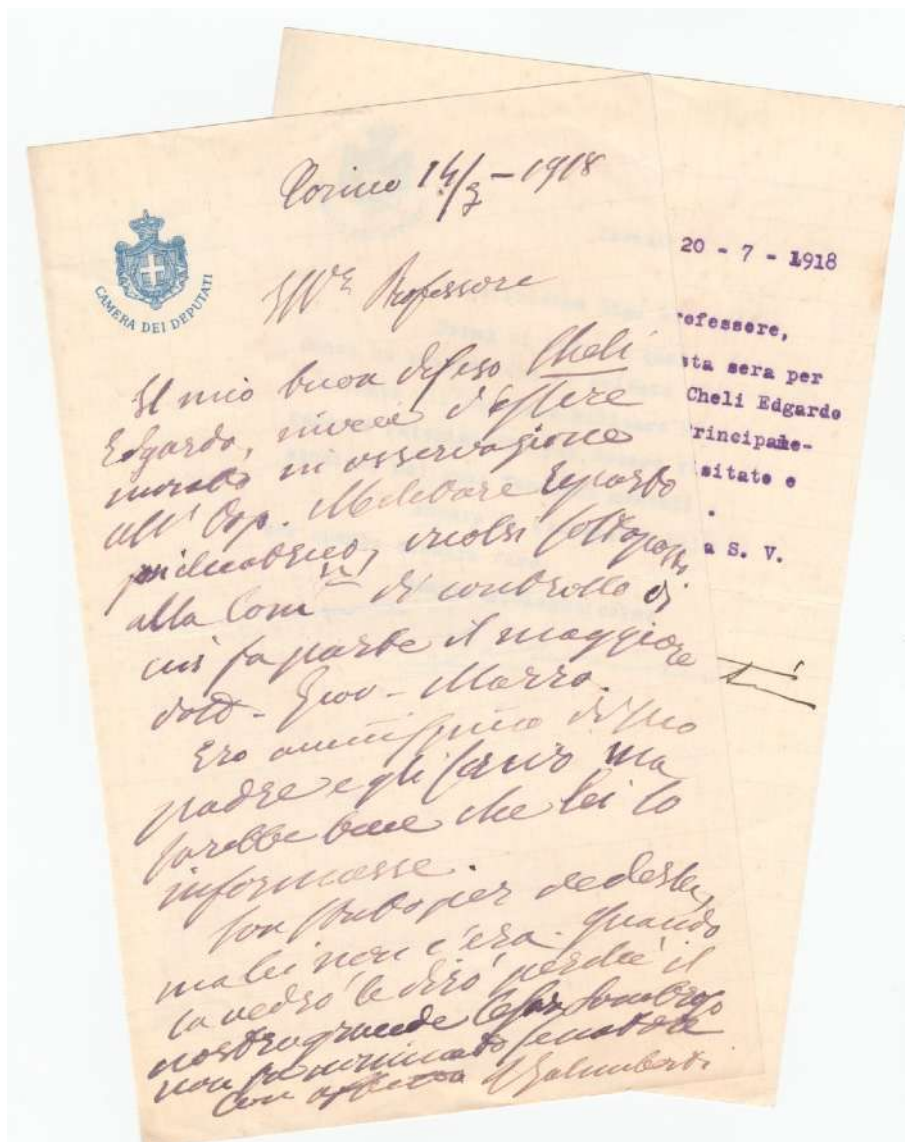 Torino 14/3 - 1918
CAMERA DEI DEPUTATI
Professore
Il mio buon difeso Cheli
Edgardo, invece d'essere
inviato in osservazione
all' Osp. Militare reparto
alla Com.ne di controllo di
cui fa parte il maggiore
dott. Giov. Marro.
Ero amicissimo di suo
padre e gli scrivo ma
sarebbe bene che lei lo
informasse.
Son stato per vederla,
ma lei non c'era. Quando
la vedrò le dirò perché il
nostro grande Cesar Lombroso
non fu nominato senatore
con affetto Galimberti
20 - 7 - 1918
rofessore,
sta sera per
Cheli Edgardo
rincipale-
sitato e
.
a S. V.